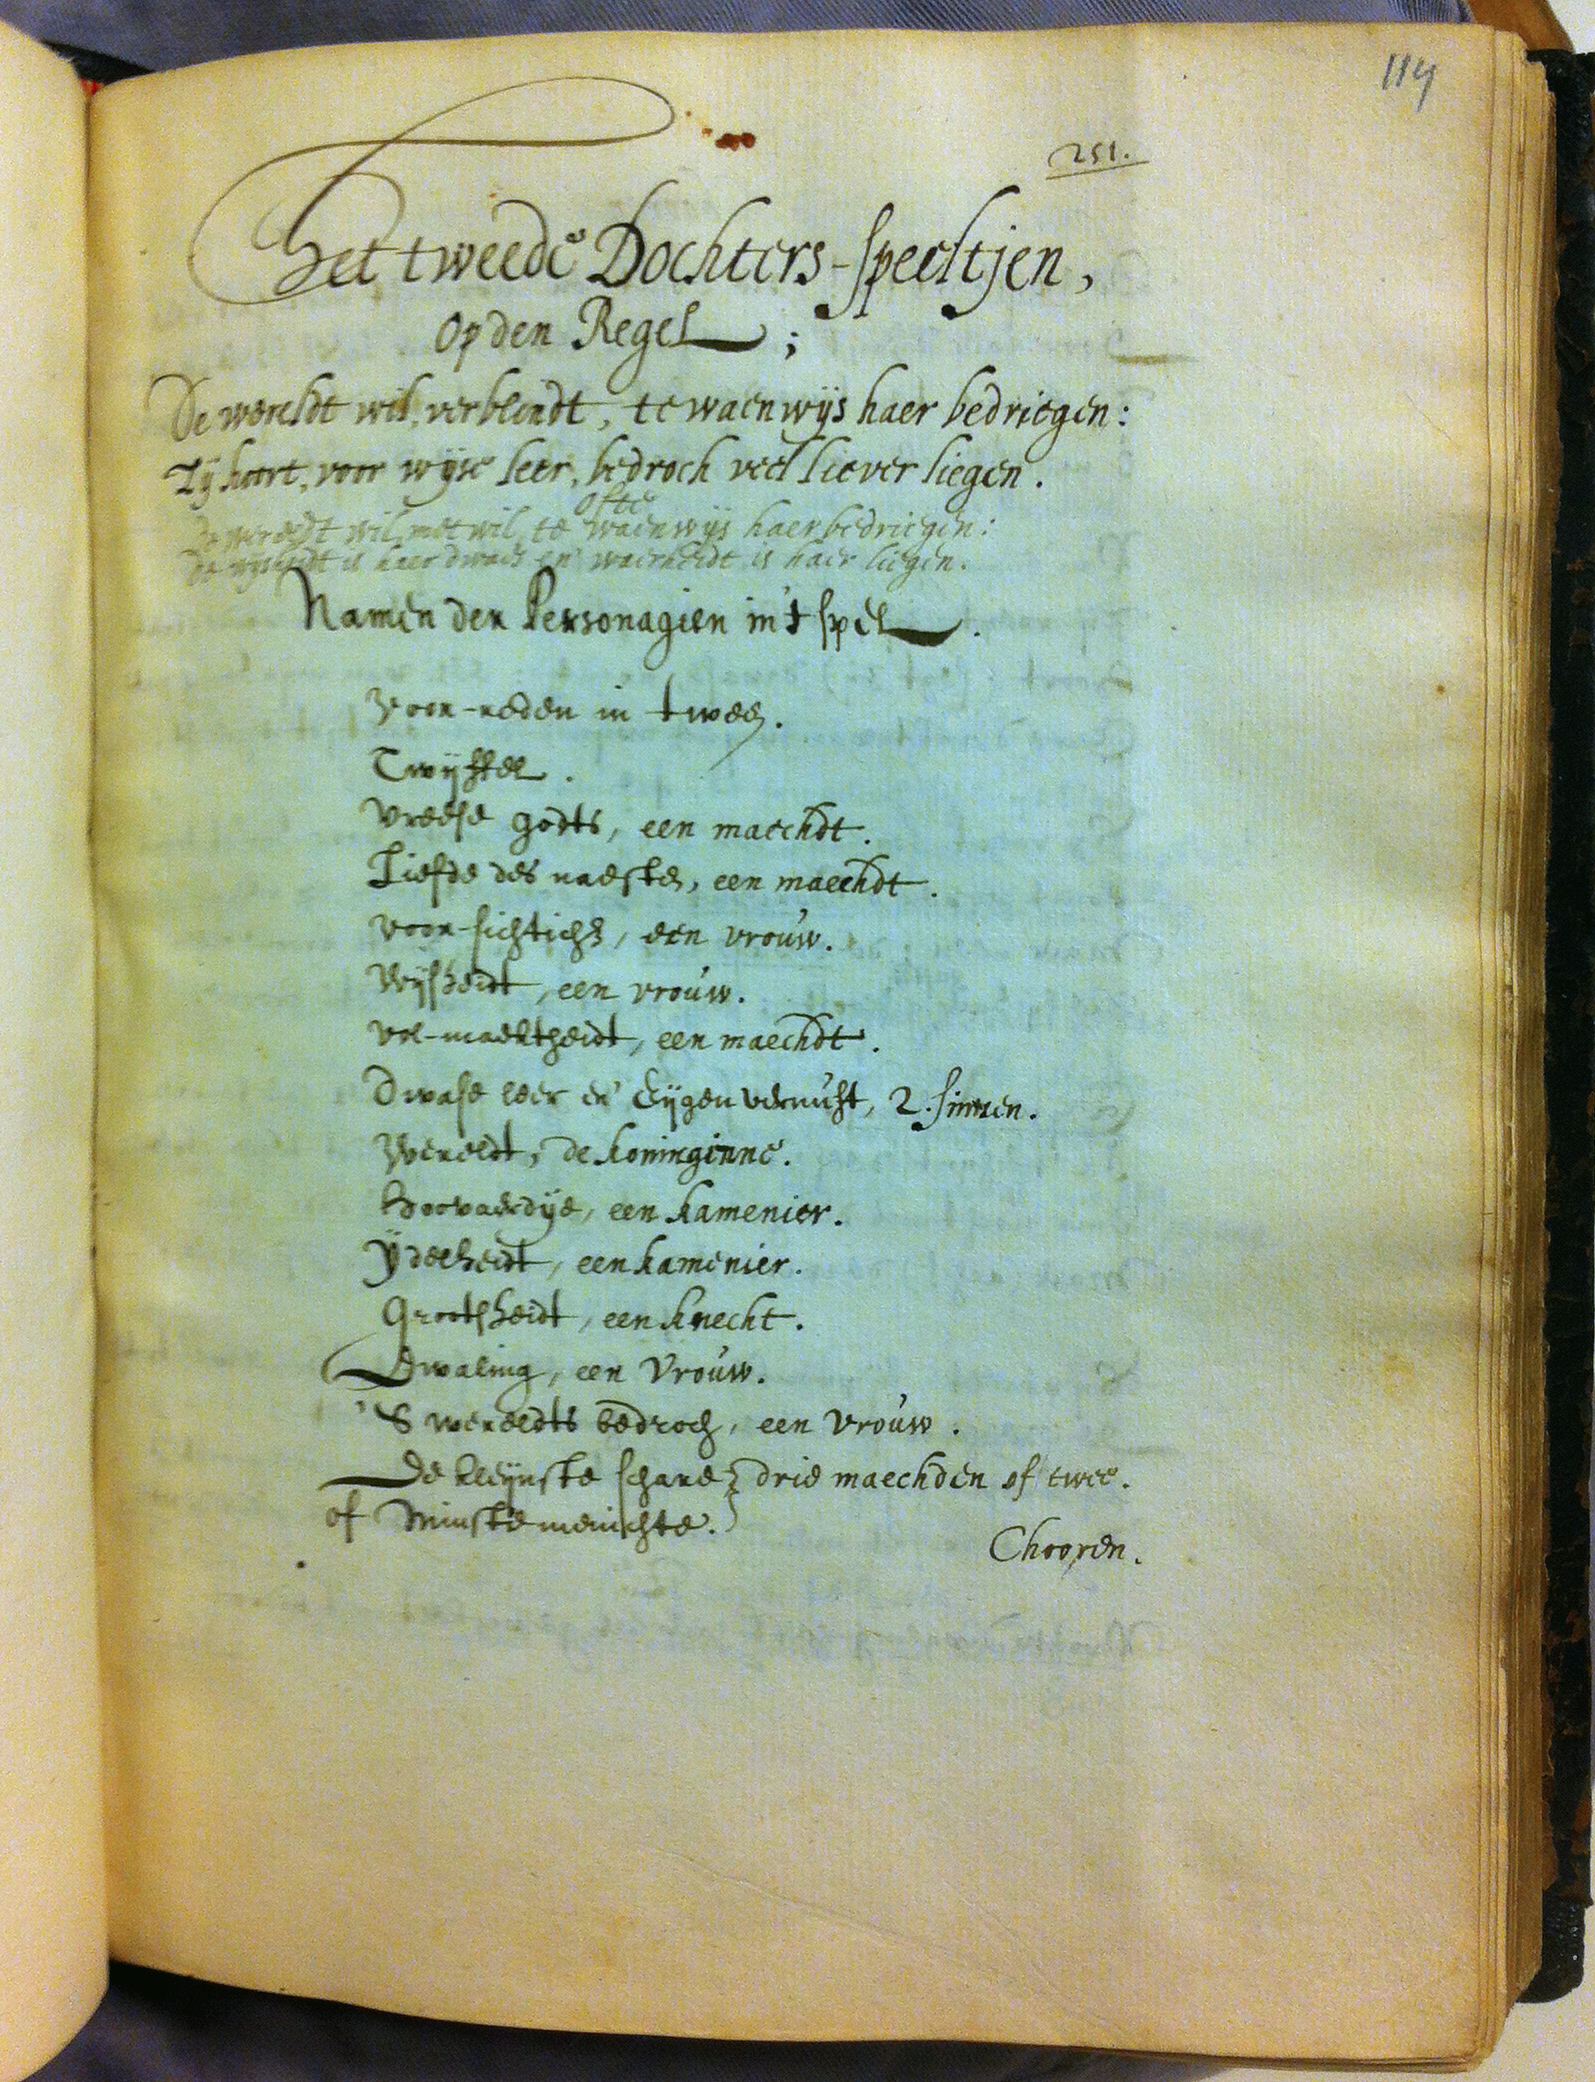 114
251.
Het tweede Dochters-speeltjen,
Op den Regel;
De wereldt wil, verblindt, te waenwijs haer bedriegen:
Zij hoort, voor wijse leer, bedroch veel liever liegen.
ofte
De wereldt wil, met wil, te waenwijs haer bedriegen:
De wijsheidt is haer dwaes en' waerheidt is haer liegen.
Namen der Personagien in't spel.
Voor-reden in twee.
Twijffel.
Vreese godts, een maechdt.
Liefde des naesten, een maechdt.
Voor-sichticht, een vrouw.
Wijsheidt, een vrouw.
Vol-maektheidt, een maechdt.
Dwase leer en' Eijgen vernuft, 2. sinnen.
Wereldt, de koninginne.
Hoovaerdije, een kamenier.
Ydelheidt, een kamenier.
Grootsheidt, een knecht.
Dwaling, een Vrouw.
'S wereldts bedroch, een Vrouw.
De kleijnste schare } drie maechden of twee.
of Minste menichte. }
Chooren.